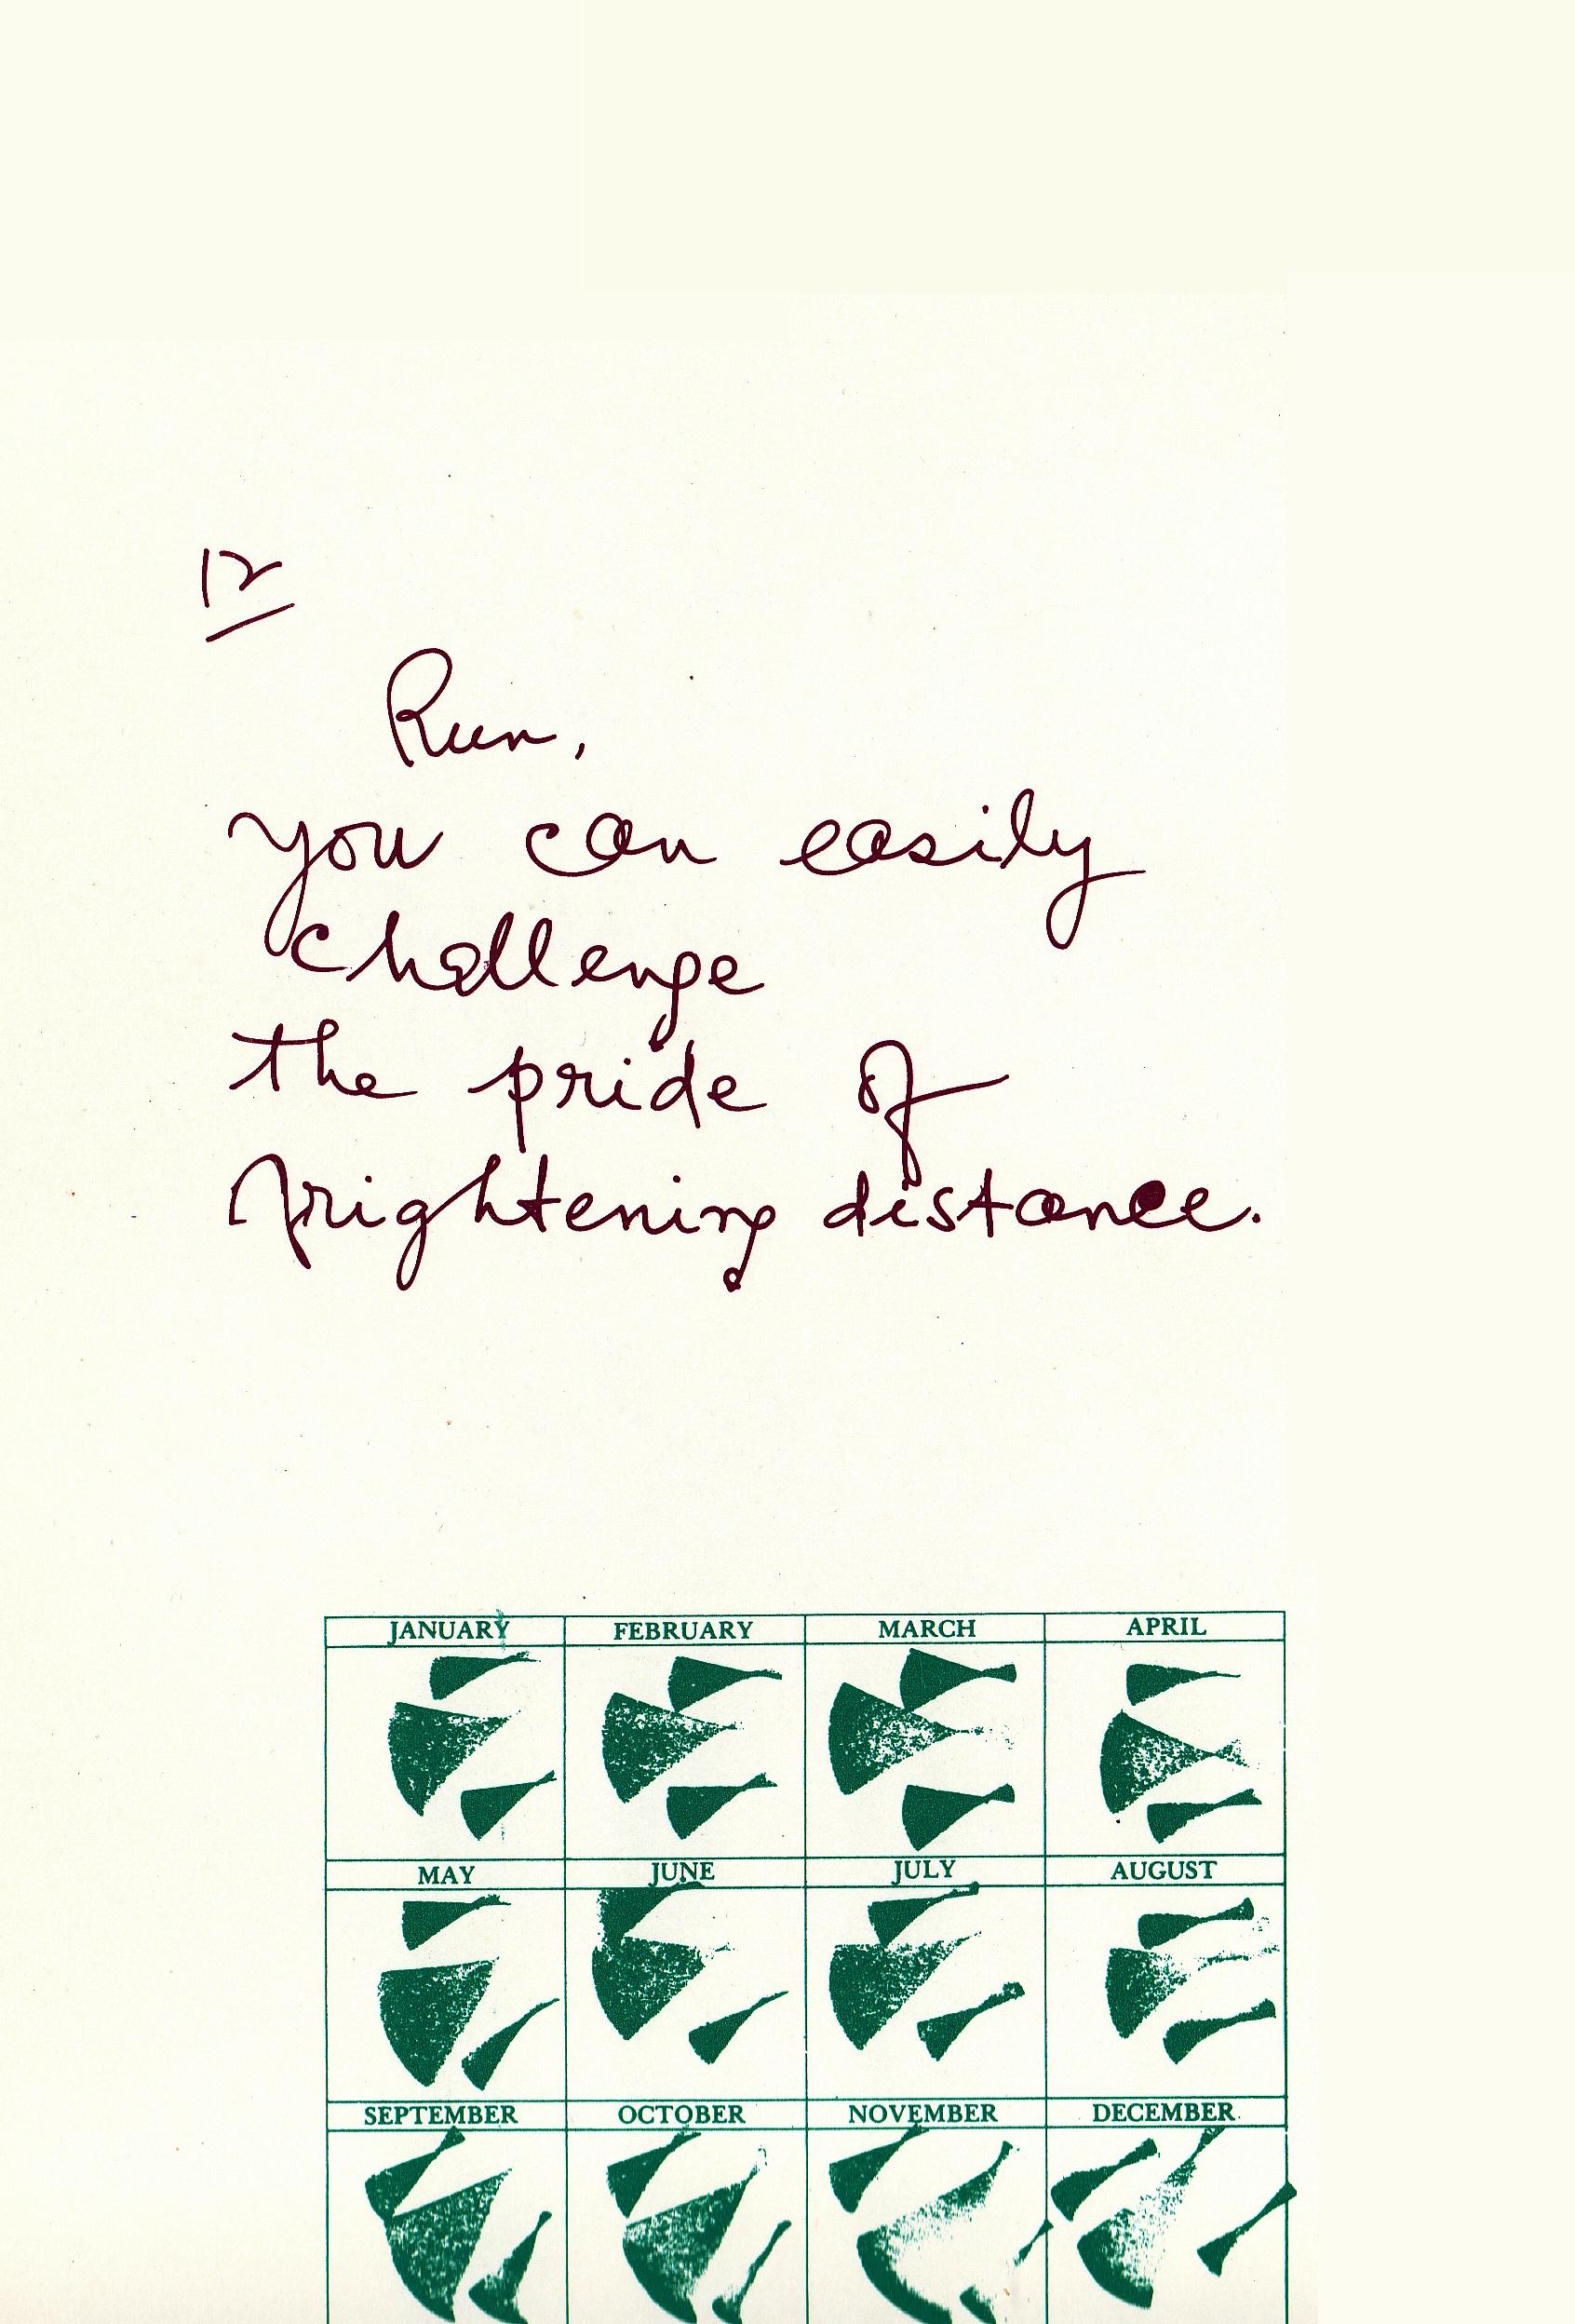 12
Run,
you can easily
challenge
the pride of
frightening distance.
JANUARY FEBRUARY MARCH APRIL
MAY JUNE JULY AUGUST
SEPTEMBER OCTOBER NOVEMBER DECEMBER